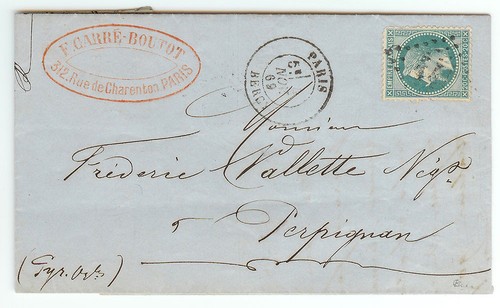 F. CARRÉ-BOUTOT
312, Rue de Charenton, PARIS
PARIS
5
NOV
69
BERCY
Monsieur
Frédéric Vallette Négt.
à
Perpignan
(Pyr. Ores)